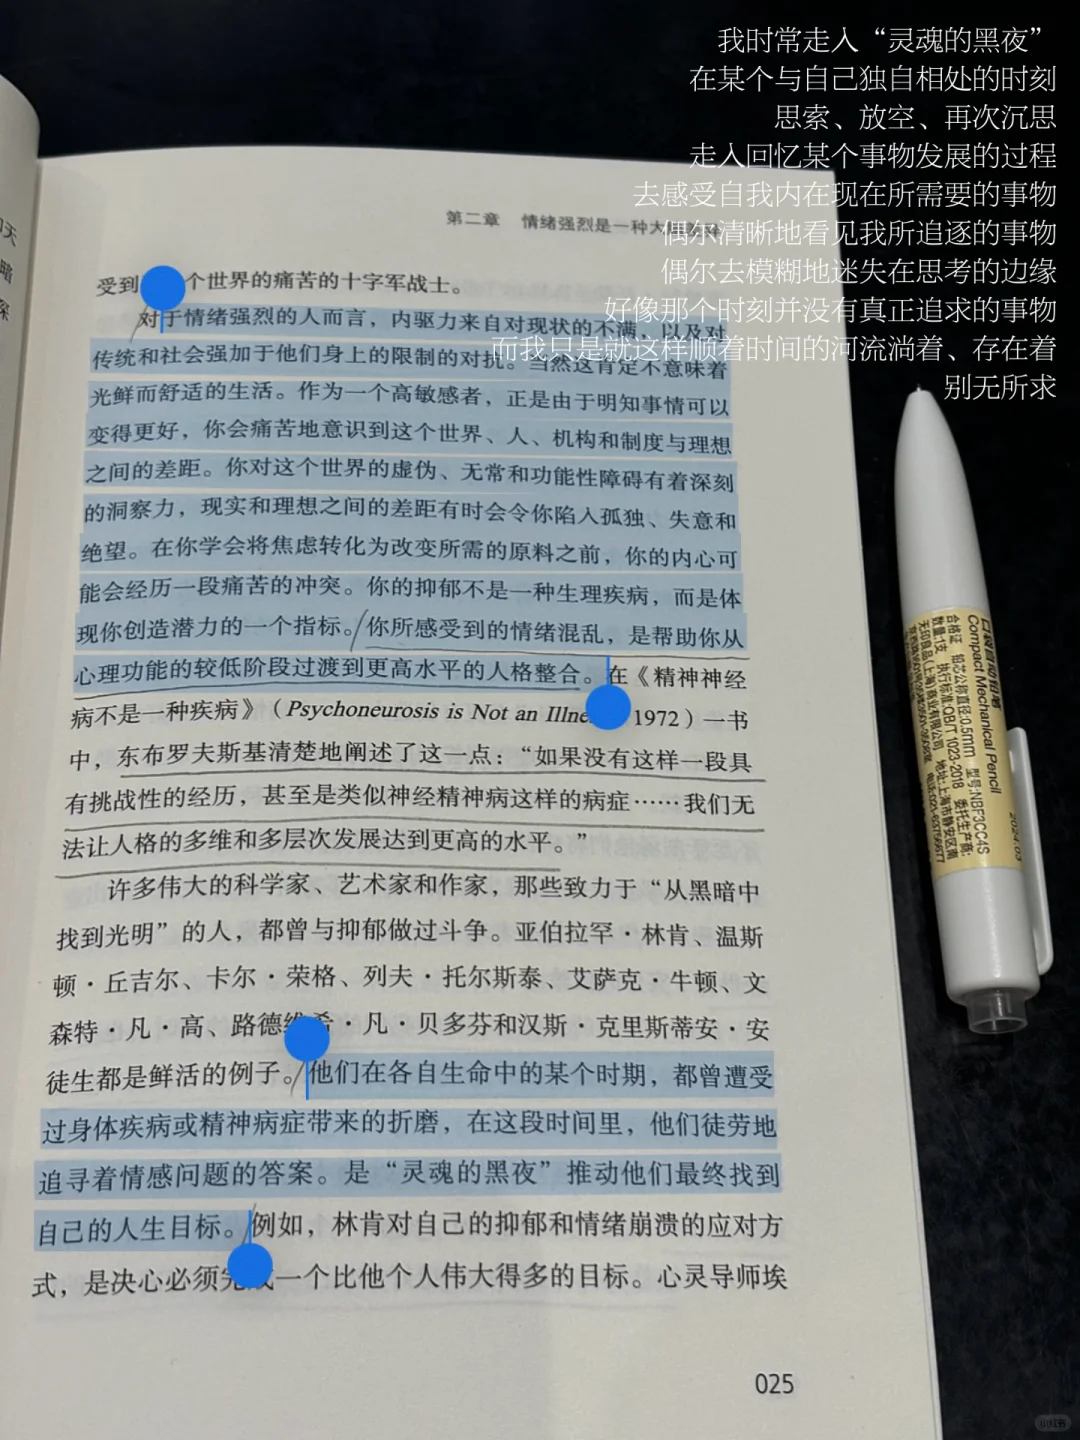 我时常走入“灵魂的黑夜”
在某个与自己独自相处的时刻
思索、放空、再次沉思
走入回忆某个事物发展的过程
去感受自我内在现在所需要的事物
偶尔清晰地看见我所追逐的事物
偶尔去模糊地迷失在思考的边缘
好像那个时刻并没有真正追求的事物
而我只是就这样顺着时间的河流淌着、存在着
别无所求
第二章 情绪强烈是一种大
受到 个世界的痛苦的十字军战士。
对于情绪强烈的人而言，内驱力来自对现状的不满，以及对
传统和社会强加于他们身上的限制的对抗。当然这肯定不意味着
光鲜而舒适的生活。作为一个高敏感者，正是由于明知事情可以
变得更好，你会痛苦地意识到这个世界、人、机构和制度与理想
之间的差距。你对这个世界的虚伪、无常和功能性障碍有着深刻
的洞察力，现实和理想之间的差距有时会令你陷入孤独、失意和
绝望。在你学会将焦虑转化为改变所需的原料之前，你的内心可
能会经历一段痛苦的冲突。你的抑郁不是一种生理疾病，而是体
现你创造潜力的一个指标。你所感受到的情绪混乱，是帮助你从
心理功能的较低阶段过渡到更高水平的人格整合。在《精神神经
病不是一种疾病》（Psychoneurosis is Not an Illne 1972）一书
中，东布罗夫斯基清楚地阐述了这一点：“如果没有这样一段具
有挑战性的经历，甚至是类似神经精神病这样的病症……我们无
法让人格的多维和多层次发展达到更高的水平。”
许多伟大的科学家、艺术家和作家，那些致力于“从黑暗中
找到光明”的人，都曾与抑郁做过斗争。亚伯拉罕·林肯、温斯
顿·丘吉尔、卡尔·荣格、列夫·托尔斯泰、艾萨克·牛顿、文
森特·凡·高、路德维希·凡·贝多芬和汉斯·克里斯蒂安·安
徒生都是鲜活的例子。他们在各自生命中的某个时期，都曾遭受
过身体疾病或精神病症带来的折磨，在这段时间里，他们徒劳地
追寻着情感问题的答案。是“灵魂的黑夜”推动他们最终找到
自己的人生目标。例如，林肯对自己的抑郁和情绪崩溃的应对方
式，是决心必须完成一个比他个人伟大得多的目标。心灵导师埃
025
口袋自动铅笔
Compact Mechanical Pencil
2024.03
合格证 铅芯公称直径:0.5mm 型号:NBF3CC4S
数量:1支 执行标准:QB/T 1023-2018 委托生产商:
无印良品(上海)商业有限公司 地址:上海市静安区南
小红书